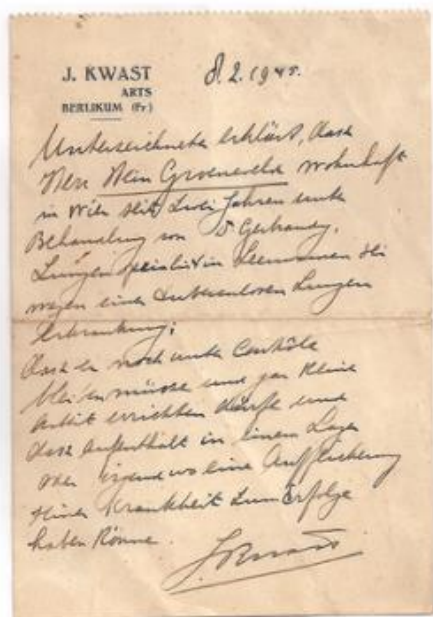 J. KWAST
ARTS
BERLIKUM (Fr.)
8.2.1945.
Unterzeichneter erklärt, dass
Herr Hein Groeneveld wohnhaft
in Wier seit zwei Jahren unter
Behandlung von
Lungenspezialist in Leeuwarden
wegen einer tuberculosen Lungen
Erkrankung;
dass er noch unter Contrôle
bleiben müsse und gar keine
Arbeit verrichten dürfe und
dass Aufenthalt in einem Lager
oder irgendwo eine Auffleckerung
seiner Krankheit zum Erfolge
haben könne.
J Kwast